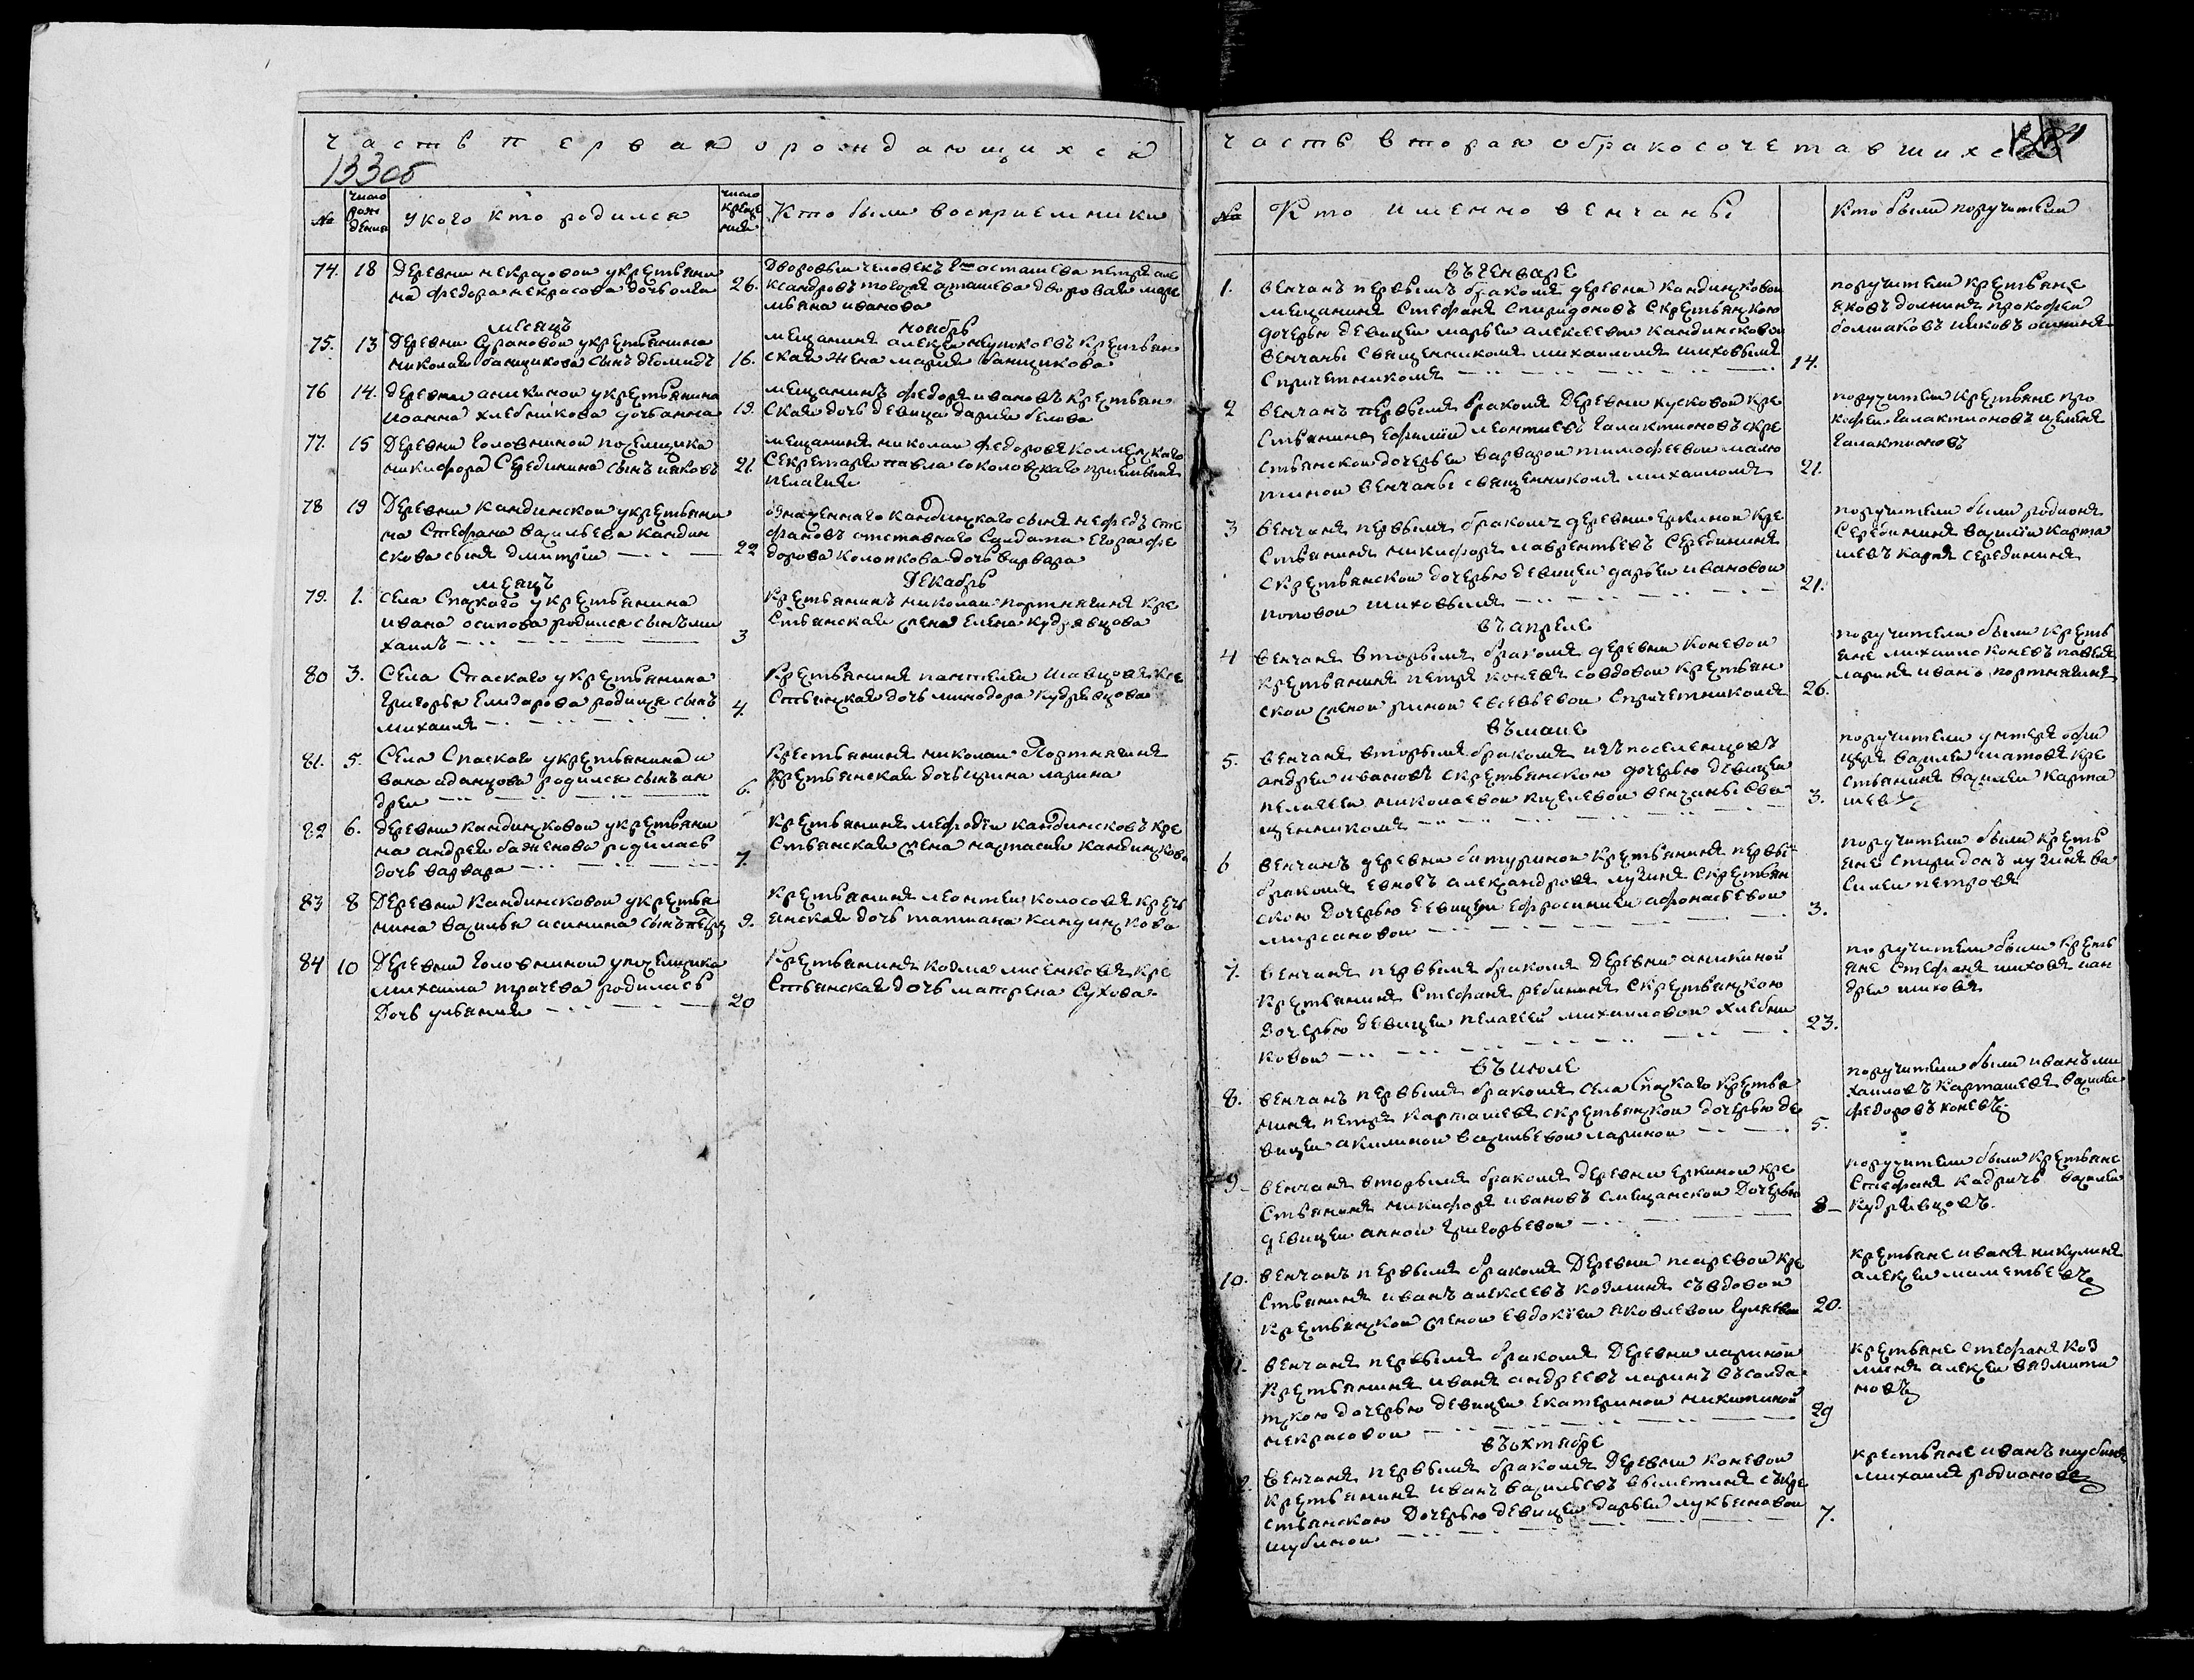 часть первая ораждающихся
133об
№
число рождения
укого кто родился
число крещения
Кто были восприемники
74. 18 Деревни некрасовои укрестьяни
на федора некрасова дочь
26.
Дворовыи человекъ петръ але
ксандровъ дворовая
ивановна
месяцъ ноябрь
75. 13 Деревни укрестьянина
николая банщикова сынъ
16.
мещанинъ алексеи крестьян
ская жена мария банщикова
76 14. деревни аникинои укрестьянина
иоанна хлебникова дочь анна
19.
мещанинъ федоръ ивановъ крестьян
ская дочь девица дария белова
77. 15 Деревни головнинои поселщика
никифора Середнина сынъ иаковъ
21.
мещанинъ николаи федоровъ
Секретаря павла соколовскаго
пелагия
78 19 Деревни кандинскои укрестьяни
на Стефана васильева кандин
скова сынъ дмитрии
22
означеннаго кандинскаго сынъ нефедъ сте
фановъ отставнаго Салдата Егора фе
дорова колопкова дочь варвара
месяцъ Декабрь
79. 1. села Спаскаго укрестьянина
ивана осипова родился сынъ ми
хаилъ
3
Крестьянинъ николаи портнягинъ кре
стьянская жена Елена кудрявцова
80 3. Села Спаскаго укрестьянина
григорья Елизарова родился сынъ
михаилъ
4.
Крестьянинъ пантелеи шавцовъ кре
стьянская дочь минодора кудрявцова
81. 5. Села Спаскаго укрестьянина и
вана аданцова родился сынъ ан
дреи
6.
Крестьянинъ николаи Портнягинъ
Крестьянская дочь ирина ларина
82 6. деревни кандинсковои укрестьяни
на андрея баженова родилась
дочь варвара
7.
Крестьянинъ мефодии кандинсковъ кре
стьянская жена настасия кандинскова
83 8 Деревни Кандинсковои укрестья
нина василья асинина сынъ петръ
9.
Крестьянинъ леонтеи колосовъ кресть
янская дочь татиана кандинскова
84 10 Деревни головнинои упоселщика
михаила трачева родилась
Дочь улияния
20
Крестьянинъ козма лисенковъ кре
стьянская дочь матрена Сухова
часть вторая обракосочетавшихся
№
Кто именно венчаны
Кто были поручители
въ генваре
1. венчанъ первымъ бракомъ деревни кандинсковои
мещанинъ Стефанъ Спиридоновъ Скрестьянскою
дочерью девицеи марьеи алексеевои кандинсковои
венчаны Священникомъ михаиломъ шиховымъ
Спричетникомъ
14.
поручители крестьяне
яковъ долнинъ прокофеи
болшаковъ
2 венчанъ первымъ бракомъ Деревни кусковои кре
стьянинъ Ефимии леонтиевъ галактионовъ скре
стьянскои дочерьеи варварои тимофеевои малю
тинои венчаны священникомъ михаиломъ
21.
поручители Крестьяне про
кофеи галактионовъ
галактионовъ
3 венчанъ первымъ бракомъ деревни Еркинои кре
стьянинъ никифоръ лаврентьевъ Серединина
скрестьянскои дочерью девицеи дарьеи ивановои
поповои шиховымъ
21.
поручители были родионъ
Серединина василии карта
шевъ карпъ серединина
въ апреле
4 венчанъ вторымъ бракомъ деревни коневои
крестьянинъ петръ коневъ совдовои крестьян
скои женои евсевьевои Спричетникомъ
26.
поручители были кресть
яне михаило коневъ павелъ
ларинъ ивано портнягинъ
въ мае
5. венчанъ вторымъ бракомъ изъ поселенцовъ
андреи ивановъ скрестьянскою дочерью девицеи
пелагеи николаевои киселевои венчаны свя
щенникомъ
3.
поручители унтеръ офи
церъ василеи шатовъ кре
стьянинъ василеи карта
шевъ
6 венчанъ деревни батуринои крестьянинъ первы
бракомъ александровъ лузинъ скрестьян
скою дочерью девицеи ефросиниеи афонасьевои
мирсановои
3.
поручители были кресть
яне спиридонъ лузинъ ва
силеи петровъ
7. венчанъ первымъ бракомъ Деревни аникинои
Крестьянинъ Стефанъ рябининъ скрестьянскою
дочерью девицеи пелагеи михаиловои хлебни
ковои
23.
поручители были кресть
яне Стефанъ шиховъ иан
дреи шиховъ
въ июле
8. венчанъ первымъ бракомъ села Спаскаго крестья
нинъ петръ карташевъ скрестьянскои дочерью де
вицеи акилинои васильевои ларинои
5.
поручители были иванъ ми
хаиловъ карташевъ василеи
федоровъ коневъ
9 венчанъ вторымъ бракомъ деревни еркинои кре
стьянинъ никифоръ ивановъ смещанскои дочерью
девицеи аннои григорьевои
8
поручители были крестьяне
Стефанъ кадричъ василеи
кудрявцовъ.
10. венчанъ первымъ бракомъ Деревни писаревои кре
стьянинъ иванъ алексеевъ козминъ съвдовои
крестьянскои женои евдокиеи яковлевои
20.
крестьяне иванъ никулинъ
алексеи маметьевъ
11. венчанъ первымъ бракомъ Деревни ларинои
Крестьянинъ иванъ андреевъ ларинъ съсалда
тскою дочерью девицеи Екатеринои никитинои
некрасовои
29
крестьяне стефанъ коз
минъ алексеи
новъ
въ октябре
венчанъ первымъ бракомъ Деревни коневои
крестьянинъ иванъ васильевъ съкре
стьянскою Дочерью девицеи дарьеи лукьяновои
шубинои
7.
крестьяне иванъ шубинъ
михаилъ родионовъ